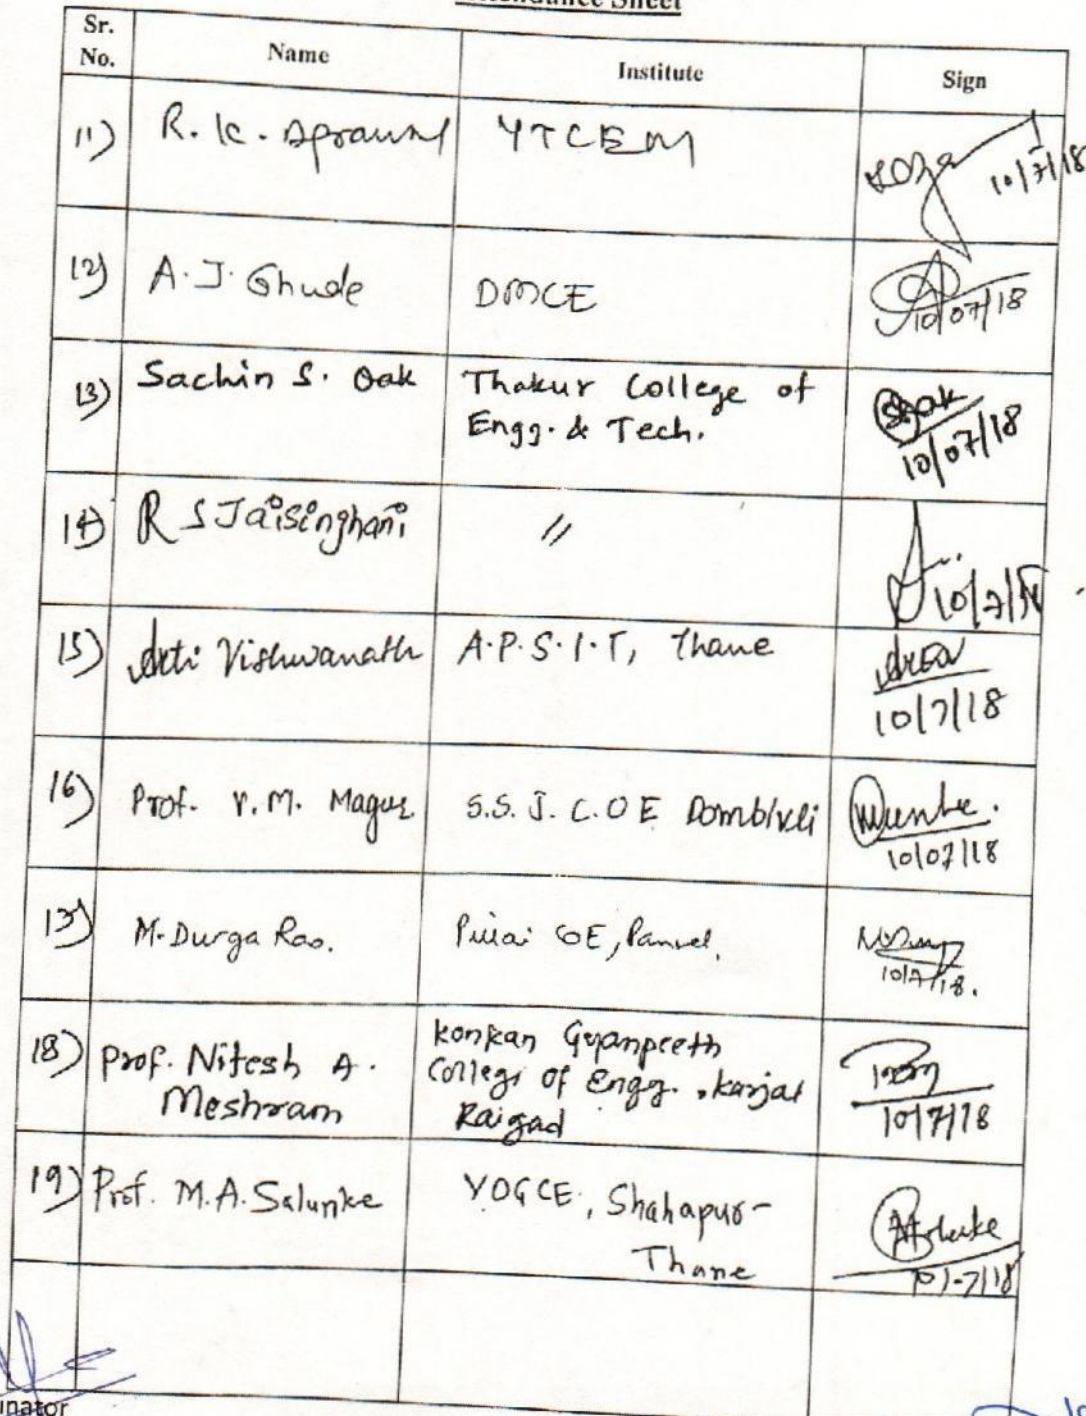 Attendance Sheet
Sr. No. Name Institute Sign
11) R. K. Agrawal YTCEM
10/7/18
12) A. J. Ghude DMCE
10/07/18
13) Sachin S. Oak Thakur College of
Engg. & Tech.
10/07/18
14) R S Jaisinghani //
10/7/18
15) Arti Vishwanath A.P.S.I.T, Thane
10/7/18
16) Prof. V.M. Magar S.S.J.C.O E Dombivli
10/07/18
17) M. Durga Rao. Pillai COE, Panvel.
10/7/18.
18) Prof. Nitesh A. Konkan Gyanpeeth
Meshram College of Engg., Karjat
Raigad
10/7/18
19) Prof. M.A. Salunke YOGCE, Shahapur-
Thane
10/7/18